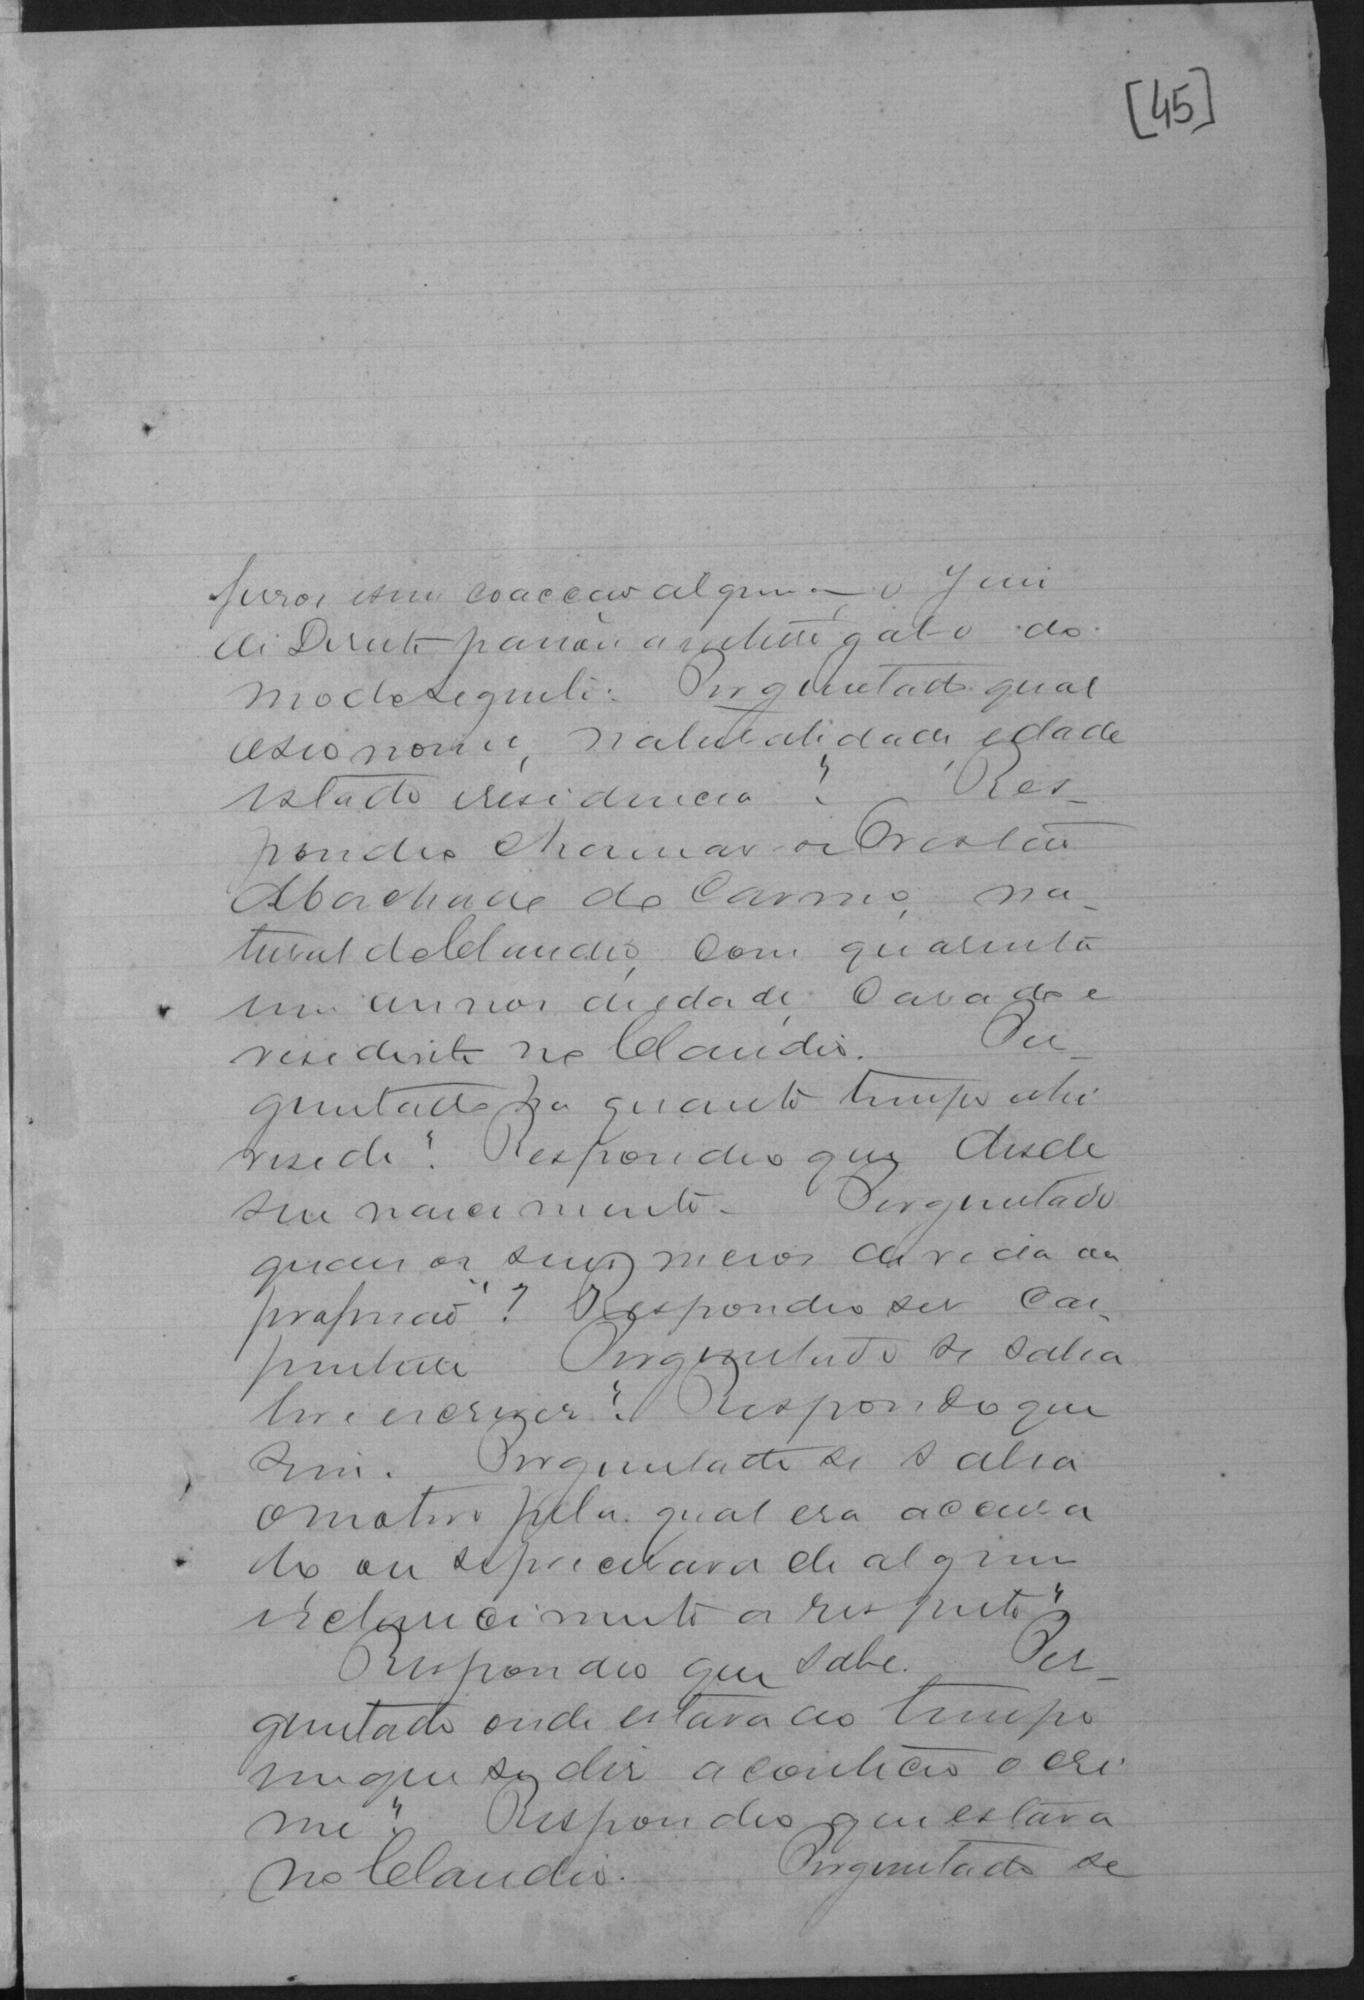 [45]
ferros e sem coacção alguma, o Juiz
de Direito passou a interrogal-o do
modo seguinte: Perguntado qual
o seo nome, naturalidade, edade
estado e residencia? Res-
pondeo chamar-se
Machado do Carmo, na-
tural do Claudio, com quarenta
um annos de edade, casado e
residente no Claudio. Per-
guntado ha quanto tempo ahi
reside? Respondeo que desde
seu nascimento. Perguntado
quaes os seus meios de vida ou
profissão? Respondeo ser car-
pinteiro Perguntado se sabia
ler e escrever? Respondeo que
sim. Perguntado se sabia
o motivo pelo qual era accusa
do ou se precisava de algum
esclarecimento a respeito?
Respondeo que sabe. Per-
guntado onde estava ao tempo
em que se diz aconteceo o cri
me? Respondeo que estava
no Claudio. Perguntado se